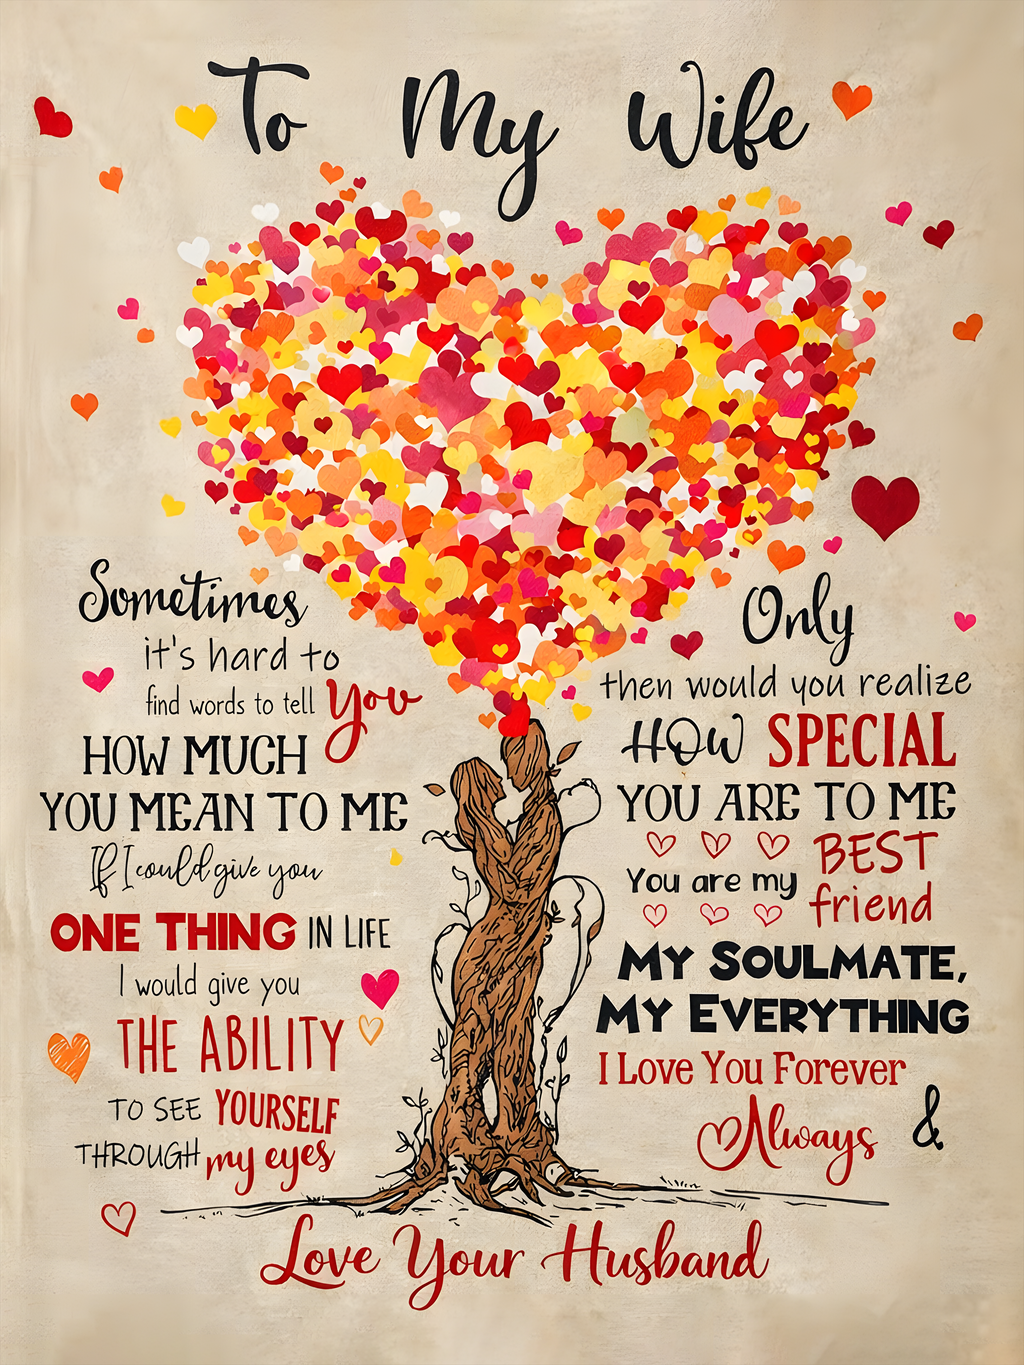 To My Wife
Sometimes
it's hard to
find words to tell You
HOW MUCH
YOU MEAN TO ME
If I could give you
ONE THING IN LIFE
I would give you
THE ABILITY
TO SEE YOURSELF
THROUGH my eyes
Only
then would you realize
HOW SPECIAL
YOU ARE TO ME
You are my BEST
friend
MY SOULMATE,
MY EVERYTHING
I Love You Forever
&
Always
Love Your Husband